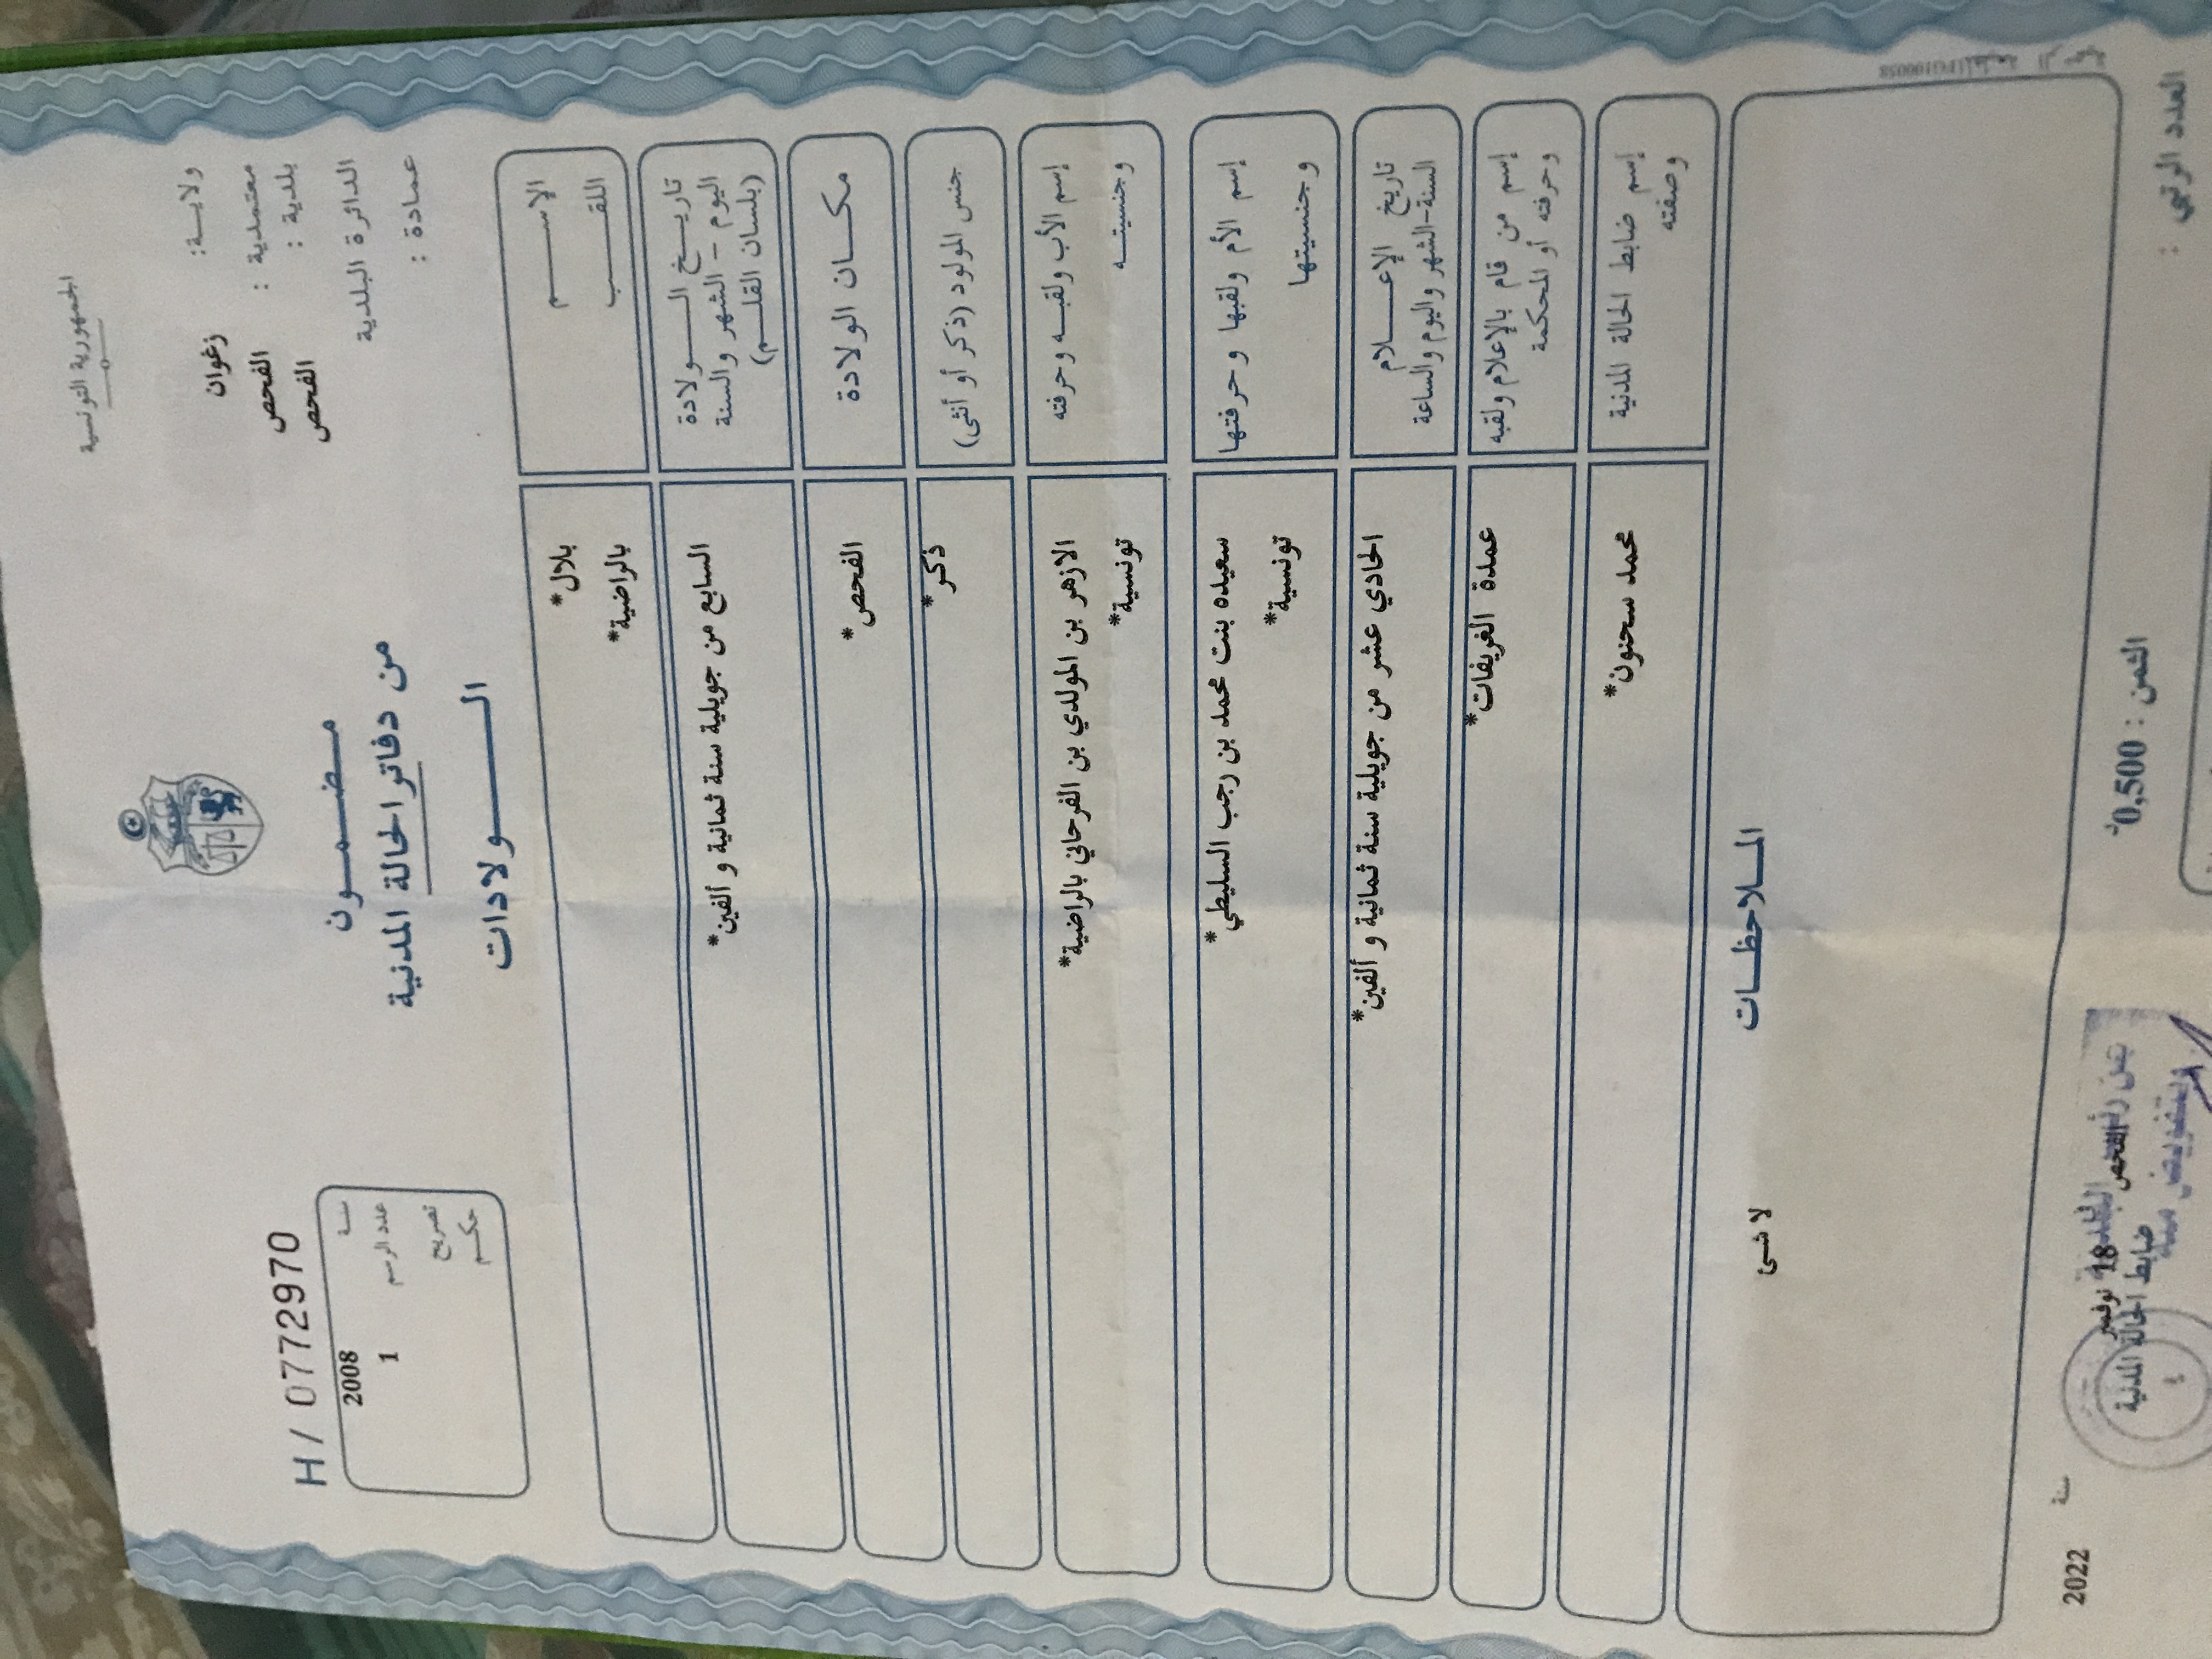 الجمهورية التونسية
ولاية: زغوان
معتمدية : الفحص
بلدية : الفحص
الدائرة البلدية
عمادة :
مضمون
من دفاتر الحالة المدنية
الولادات
H/ 0772970
سنة 2008
عدد الرسم 1
تصريح
حكم
الإسم بلال*
اللقب بالراضية*
تاريخ الولادة
اليوم - الشهر والسنة
(بلسان القلم)
السابع من جويلية سنة ثمانية و ألفين*
مكان الولادة الفحص*
جنس المولود (ذكر أو أنثى) ذكر*
إسم الأب ولقبه وحرفته الازهر بن المولدي بن الفرحاني بالراضية*
وجنسيته تونسية*
إسم الأم ولقبها وحرفتها سعيده بنت محمد بن رجب السليطي*
وجنسيتها تونسية*
تاريخ الإعلام
السنة-الشهر واليوم والساعة
الحادي عشر من جويلية سنة ثمانية و ألفين*
إسم من قام بالإعلام ولقبه
وحرفته أو المحكمة
عمدة الغريفات*
إسم ضابط الحالة المدنية
وصفته
محمد سحنون*
الملاحظات
لا شئ
الفحص 18 نوفمبر سنة 2022
ضابط الحالة المدنية
الثمن : 0,500د
العدد الرتبي :